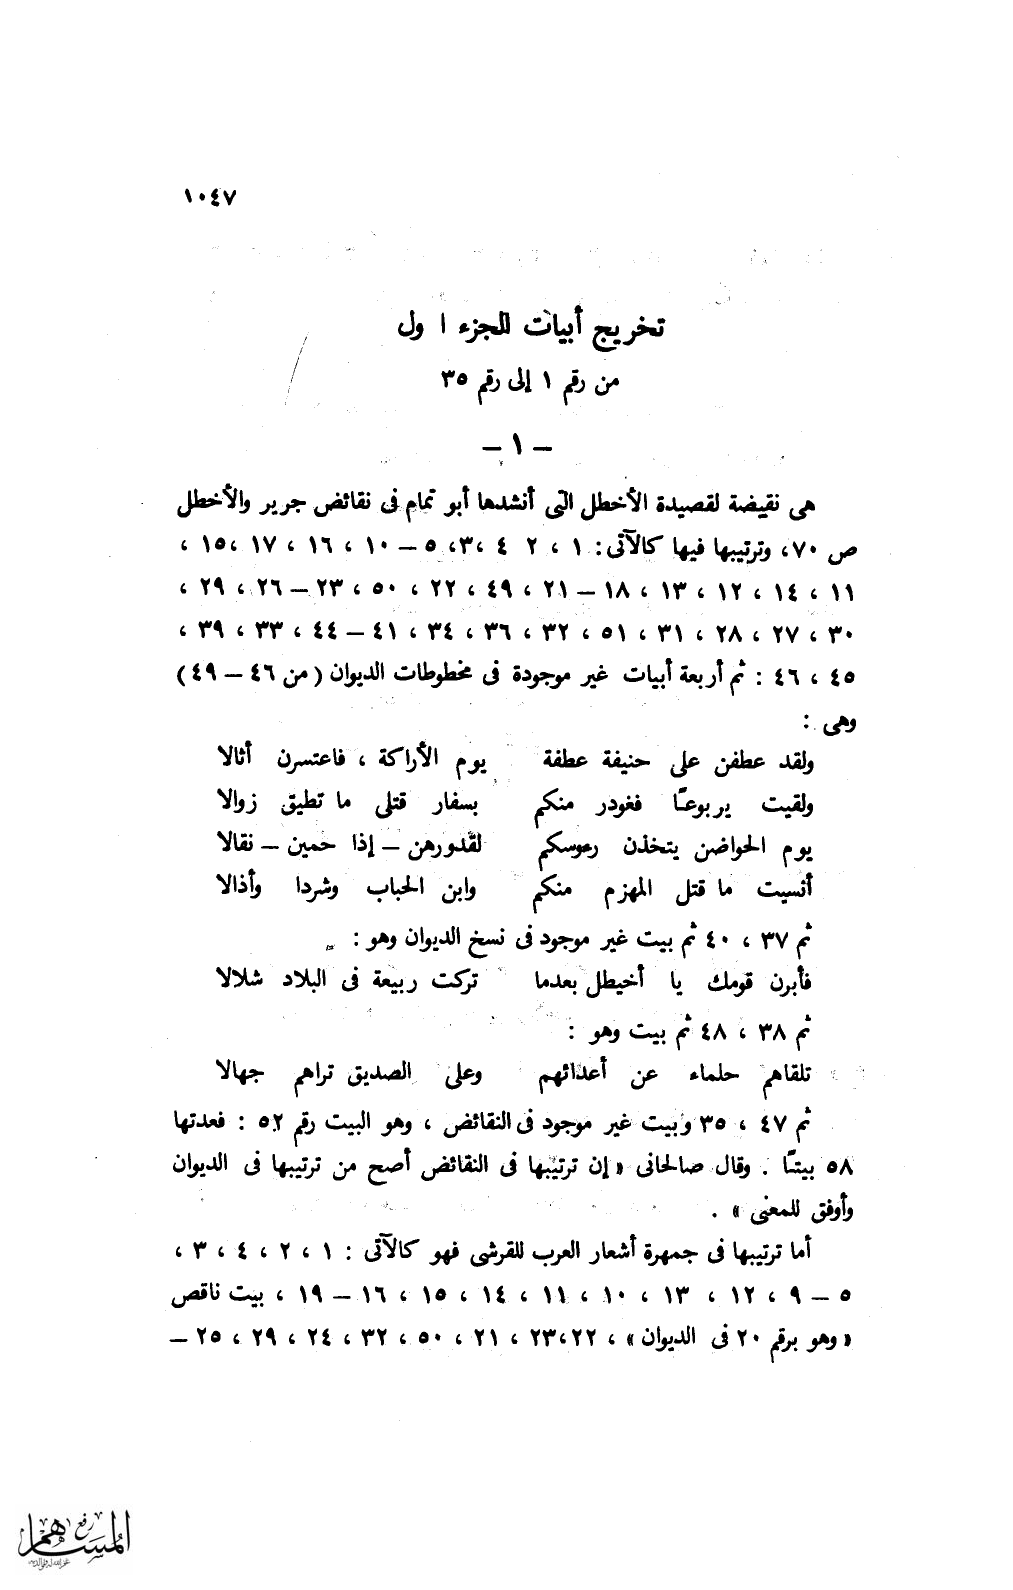 ١٠٤٧
تخريج أبيات الجزء ا ول
من رقم ١ إلى رقم ٣٥
– ١ –
هى نقيضة لقصيدة الأخطل التى أنشدها أبو تمام فى نقائض جرير والأخطل
ص ٧٠، وترتيبها فيها كالآتى: ١ ، ٢ ٤ ،٣، ٥ – ١٠ ، ١٦ ، ١٧ ،١٥ ،
١١ ، ١٤ ، ١٢ ، ١٣ ، ١٨ – ٢١ ، ٤٩ ، ٢٢ ، ٥٠ ، ٢٣ – ٢٦ ، ٢٩ ،
٣٠ ، ٢٧ ، ٢٨ ، ٣١ ، ٥١ ، ٣٢ ، ٣٦ ، ٣٤ ، ٤١ – ٤٤ ، ٣٣ ، ٣٩ ،
٤٥ ، ٤٦ : ثم أربعة أبيات غير موجودة فى مخطوطات الديوان (من ٤٦ – ٤٩)
وهى :
ولقد عطفن على حنيفة عطفة يوم الأراكة ، فاعتسرن أثالا
ولقيت يربوعًا فغودر منكم بسفار قتلى ما تطيق زوالا
يوم الحواضن يتخذن رءوسكم لقدورهن – إذا حمين – نقالا
أنسيت ما قتل المهزم منكم وابن الحباب وشردا وأذالا
ثم ٣٧ ، ٤٠ ثم بيت غير موجود فى نسخ الديوان وهو :
فأبرن قومك يا أخيطل بعدما تركت ربيعة فى البلاد شلالا
ثم ٣٨ ، ٤٨ ثم بيت وهو :
تلقاهم حلماء عن أعدائهم وعلى الصديق تراهم جهالا
ثم ٤٧ ، ٣٥ وبيت غير موجود فى النقائض ، وهو البيت رقم ٥٢ : فعدتها
٥٨ بيتًا . وقال صالحانى « إن ترتيبها فى النقائض أصح من ترتيبها فى الديوان
وأوفق للمعنى » .
أما ترتيبها فى جمهرة أشعار العرب للقرشى فهو كالآتى : ١ ، ٢ ، ٤ ، ٣ ،
٥ – ٩ ، ١٢ ، ١٣ ، ١٠ ، ١١ ، ١٤ ، ١٥ ، ١٦ – ١٩ ، بيت ناقص
« وهو برقم ٢٠ فى الديوان» ، ٢٣،٢٢ ، ٢١ ، ٥٠ ، ٣٢ ، ٢٤ ، ٢٩ ، ٢٥ –
رفع
المساهم